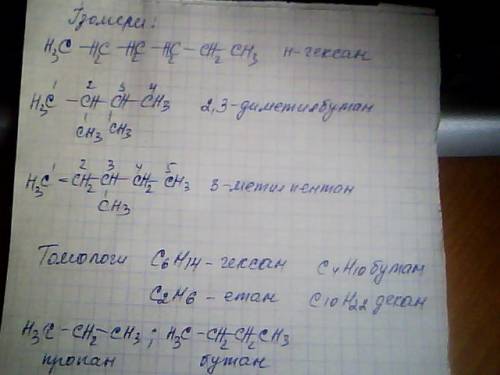 Ізомери:
H3C - H2C - H2C - H2C - CH2 - CH3 н-гексан
1 2 3 4
H3C - CH - CH - CH3 2,3-диметилбутан
CH3 CH3
1 2 3 4 5
H3C - CH2 - CH - CH2 - CH3 3-метилпентан
CH3
Гомологи C6H14 - гексан C4H10 бутан
C2H6 - етан C10H22 декан
H3C - CH2 - CH3 ; H3C - CH2 - CH2 - CH3
пропан бутан